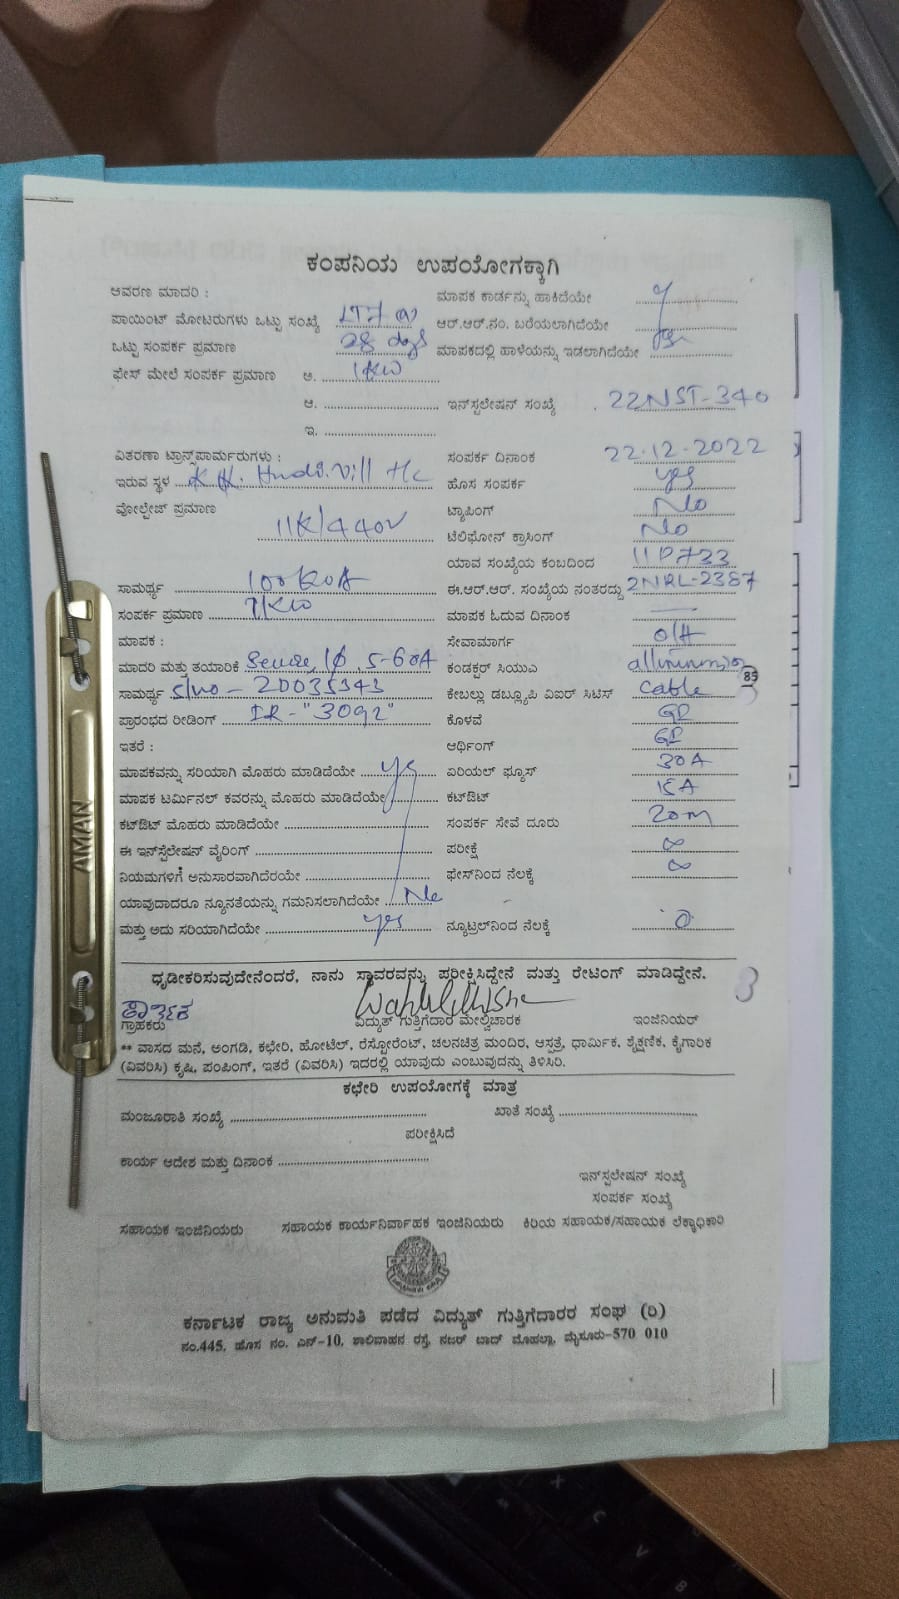 ಕಂಪನಿಯ ಉಪಯೋಗಕ್ಕಾಗಿ
ಆವರಣ ಮಾದರಿ :
ಮಾಪಕ ಕಾರ್ಡನ್ನು ಹಾಕಿದೆಯೇ
ಪಾಯಿಂಟ್ ಮೋಟರುಗಳು ಒಟ್ಟು ಸಂಖ್ಯೆ LT7
ಆರ್.ಆರ್.ನಂ. ಬರೆಯಲಾಗಿದೆಯೇ
ಒಟ್ಟು ಸಂಪರ್ಕ ಪ್ರಮಾಣ 28 days
ಮಾಪಕದಲ್ಲಿ ಹಾಳೆಯನ್ನು ಇಡಲಾಗಿದೆಯೇ
ಫೇಸ್ ಮೇಲೆ ಸಂಪರ್ಕ ಪ್ರಮಾಣ ಅ. 1KW
ಆ. ಇನ್‌ಸ್ಟಲೇಷನ್ ಸಂಖ್ಯೆ 22NST-340
ಇ.
ವಿತರಣಾ ಟ್ರಾನ್ಸ್‌ಪಾರ್ಮರುಗಳು :
ಸಂಪರ್ಕ ದಿನಾಂಕ 22.12.2022
ಇರುವ ಸ್ಥಳ
ಹೊಸ ಸಂಪರ್ಕ yes
ವೋಲ್ಟೇಜ್ ಪ್ರಮಾಣ 11K/440V
ಟ್ಯಾಪಿಂಗ್ No
ಟೆಲಿಫೋನ್ ಕ್ರಾಸಿಂಗ್ No
ಯಾವ ಸಂಖ್ಯೆಯ ಕಂಬದಿಂದ 11P733
ಸಾಮರ್ಥ್ಯ 100KVA
ಈ.ಆರ್.ಆರ್. ಸಂಖ್ಯೆಯ ನಂತರದ್ದು 2NRL-2387
ಸಂಪರ್ಕ ಪ್ರಮಾಣ 1KW
ಮಾಪಕ ಓದುವ ದಿನಾಂಕ
ಮಾಪಕ :
ಸೇವಾಮಾರ್ಗ O/H
ಮಾದರಿ ಮತ್ತು ತಯಾರಿಕೆ 1φ 5-60A
ಕಂಡಕ್ಟರ್ ಸಿಯುಎ
ಸಾಮರ್ಥ್ಯ S/no - 20035343
ಕೇಬಲ್ಲು ಡಬ್ಲ್ಯೂಪಿ ವಿಐಆರ್ ಸಿಟಿಸ್ cable
85
ಪ್ರಾರಂಭದ ರೀಡಿಂಗ್ IR - "3092"
ಕೊಳವೆ GI
ಇತರೆ :
ಆರ್ಥಿಂಗ್ GI
ಮಾಪಕವನ್ನು ಸರಿಯಾಗಿ ಮೊಹರು ಮಾಡಿದೆಯೇ yes
ಏರಿಯಲ್ ಫ್ಯೂಸ್ 30A
ಮಾಪಕ ಟರ್ಮಿನಲ್ ಕವರನ್ನು ಮೊಹರು ಮಾಡಿದೆಯೇ
ಕಟ್‌ಔಟ್ 15A
ಕಟ್‌ಔಟ್ ಮೊಹರು ಮಾಡಿದೆಯೇ
ಸಂಪರ್ಕ ಸೇವೆ ದೂರು 20m
ಈ ಇನ್‌ಸ್ಟೆಲೇಷನ್ ವೈರಿಂಗ್
ಪರೀಕ್ಷೆ ∞
ನಿಯಮಗಳಿಗೆ ಅನುಸಾರವಾಗಿದೆರಯೇ
ಫೇಸ್‌ನಿಂದ ನೆಲಕ್ಕೆ ∞
ಯಾವುದಾದರೂ ನ್ಯೂನತೆಯನ್ನು ಗಮನಿಸಲಾಗಿದೆಯೇ No
ಮತ್ತು ಅದು ಸರಿಯಾಗಿದೆಯೇ yes
ನ್ಯೂಟ್ರಲ್‌ನಿಂದ ನೆಲಕ್ಕೆ 0
ಧೃಡೀಕರಿಸುವುದೇನೆಂದರೆ, ನಾನು ಸ್ಥಾವರವನ್ನು ಪರೀಕ್ಷಿಸಿದ್ದೇನೆ ಮತ್ತು ರೇಟಿಂಗ್ ಮಾಡಿದ್ದೇನೆ.
ಗ್ರಾಹಕರು ವಿದ್ಯುತ್ ಗುತ್ತಿಗೆದಾರ ಮೇಲ್ವಿಚಾರಕ ಇಂಜಿನಿಯರ್
** ವಾಸದ ಮನೆ, ಅಂಗಡಿ, ಕಛೇರಿ, ಹೋಟೆಲ್, ರೆಸ್ಟೋರೆಂಟ್, ಚಲನಚಿತ್ರ ಮಂದಿರ, ಆಸ್ಪತ್ರೆ, ಧಾರ್ಮಿಕ, ಶೈಕ್ಷಣಿಕ, ಕೈಗಾರಿಕ
(ವಿವರಿಸಿ) ಕೃಷಿ, ಪಂಪಿಂಗ್, ಇತರೆ (ವಿವರಿಸಿ) ಇದರಲ್ಲಿ ಯಾವುದು ಎಂಬುವುದನ್ನು ತಿಳಿಸಿರಿ.
ಕಛೇರಿ ಉಪಯೋಗಕ್ಕೆ ಮಾತ್ರ
ಮಂಜೂರಾತಿ ಸಂಖ್ಯೆ ಖಾತೆ ಸಂಖ್ಯೆ
ಪರೀಕ್ಷಿಸಿದೆ
ಕಾರ್ಯ ಆದೇಶ ಮತ್ತು ದಿನಾಂಕ
ಇನ್‌ಸ್ಟಲೇಷನ್ ಸಂಖ್ಯೆ
ಸಂಪರ್ಕ ಸಂಖ್ಯೆ
ಸಹಾಯಕ ಇಂಜಿನಿಯರು ಸಹಾಯಕ ಕಾರ್ಯನಿರ್ವಾಹಕ ಇಂಜಿನಿಯರು ಕಿರಿಯ ಸಹಾಯಕ/ಸಹಾಯಕ ಲೆಕ್ಕಾಧಿಕಾರಿ
ಕರ್ನಾಟಕ ರಾಜ್ಯ ಅನುಮತಿ ಪಡೆದ ವಿದ್ಯುತ್ ಗುತ್ತಿಗೆದಾರರ ಸಂಘ (ರಿ)
ನಂ.445, ಹೊಸ ನಂ. ಎನ್-10, ಶಾಲಿವಾಹನ ರಸ್ತೆ, ನಜರ್ ಬಾದ್ ಮೊಹಲ್ಲಾ, ಮೈಸೂರು-570 010
AMAN